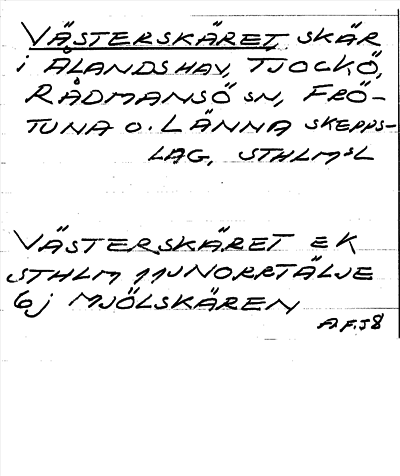 VÄSTERSKÄRET, SKÄR
i ÅLANDSHAV, TJOCKÖ,
RÅDMANSÖ SN, FRÖ-
TUNA O. LÄNNA SKEPPS-
LAG, STHLMSL
VÄSTERSKÄRET EK
STHLM 11J NORRTÄLJE
6j MJÖLSKÄREN